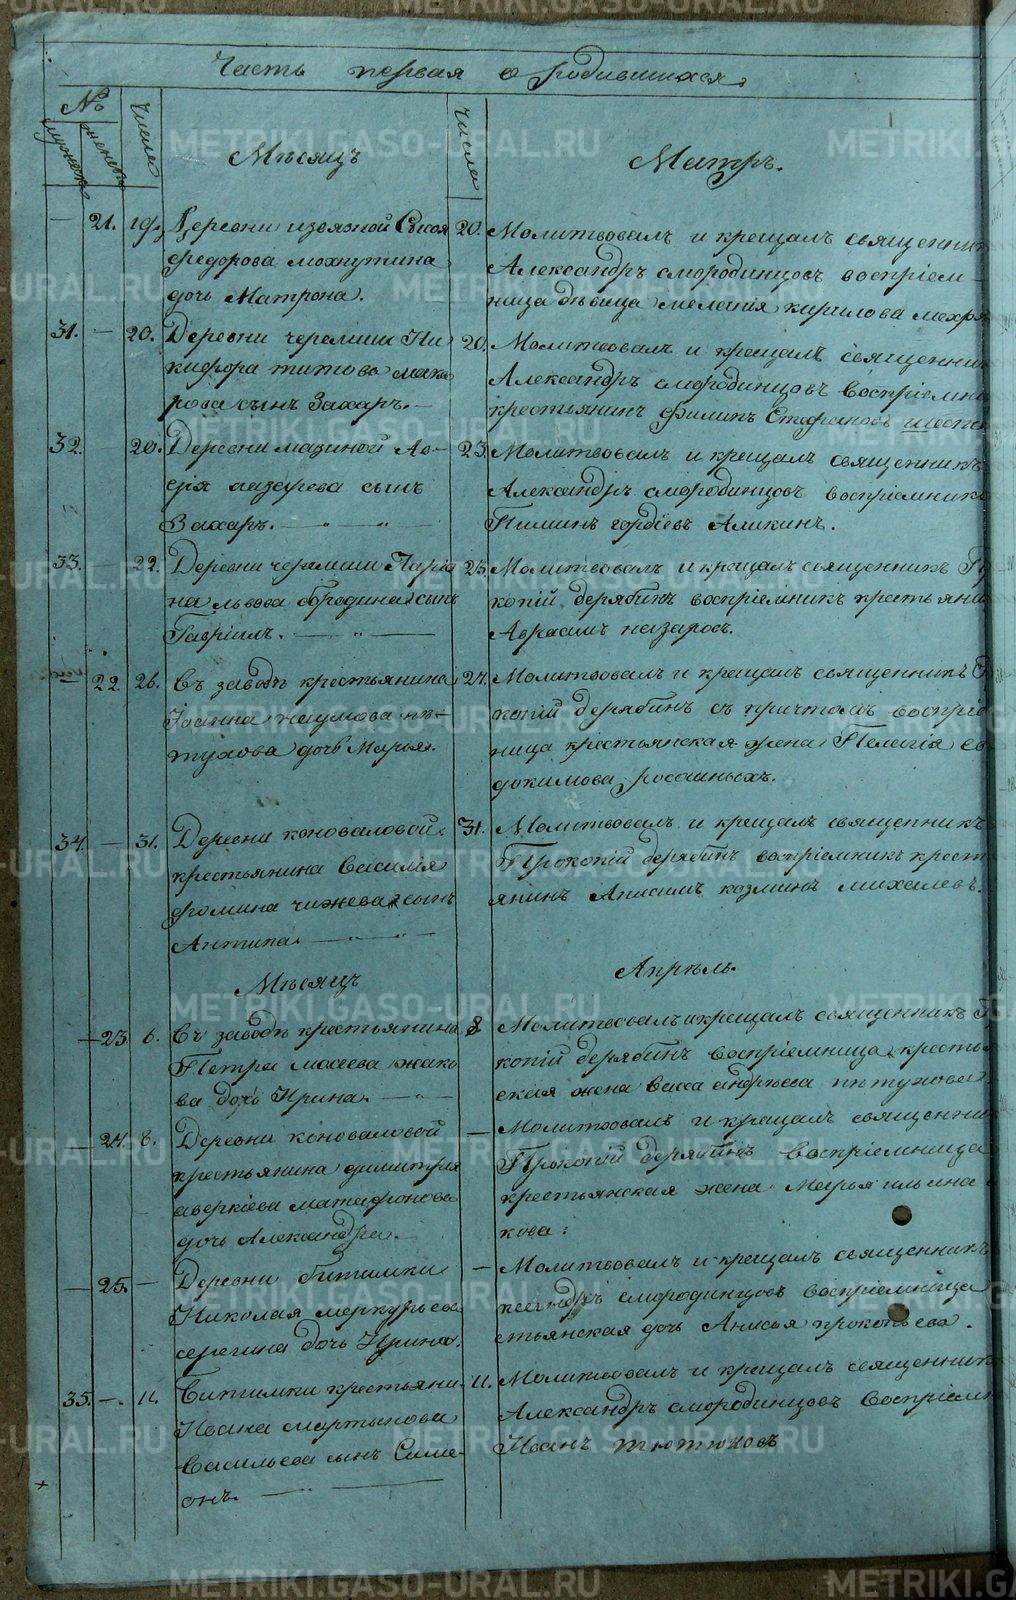 Часть первая о родившихся.
№
мужеск
женск
Числа
Месяцъ
Числа
Мартъ.
— 21. 19. Деревни извязной Сысоя
федорова мохнутина
дочь Матрона.
20. Молитвовалъ и крещалъ священник
Александръ смородинцовъ восприем-
ница девица мелания кирилова
31. — 20. Деревни черемши Ни
кифора титова мака
рова сынъ Захаръ. —
20. Молитвовалъ и крещалъ священни
Александръ смородинцовъ восприемни
крестьянинъ филипъ Стефановъ
32. 20. Деревни мазиной Ав-
сынъ
Захаръ. — „ — „ —
23. Молитвовалъ и крещалъ священникъ
Александръ смородинцовъ восприемник
Пиминъ гордіевъ Аликинъ.
33. — 22. Деревни черемши Ларіо
на львова бородина сынъ
Гавріилъ. — „ —
23. Молитвовалъ и крещалъ священникъ П
копій дерябинъ воспріемникъ крестьяни
Аврамъ назаровъ.
— 22. 26. Въ заводе крестьянина
Іоанна наумова пе-
тухова дочь Марья.
27. Молитвовалъ и крещалъ священникъ
копій дерябинъ съ причтомъ воспріе
ница крестьянская жена Пелагія ев
докимова россшиныхъ.
34. — 31. Деревни коноваловой
крестьянина василія
фомина чижева сынъ
Антипа. — „ —
31. Молитвовалъ и крещалъ священникъ
Прокопій дерябинъ воспріемникъ крест
янинъ Анисимъ козминъ михалевъ.
Месяцъ
Апрель.
— 23. 6. Въ заводе крестьянина
Петра моисеева жако
ва дочь Ирина. — „ —
8. Молитвовалъ и крещалъ священник П
копій дерябинъ воспріемница кресть
ская жена васса андреева петухова
— 24. 8. Деревни коноваловой
крестьянина димитрия
аверкіева матафонова
дочь Александра. —
— Молитвовалъ и крещалъ священни
Прокопій дерябинъ воспріемница
крестьянская жена Марья ильина
кова:
— 25. — Деревни битимки
Николая меркурьева
серегина дочь Ирина.
— Молитвовалъ и крещалъ священникъ
ксандръ смородинцовъ воспріемница
стьянская дочь Анисья прокопьева.
35. — 11. Битимки крестьяни
Ивана мартынова
васильева сынъ Симе
онъ. — —
11. Молитвовалъ и крещалъ священник
Александръ смородинцовъ воспріемн
Иванъ тютюковъ
METRIKI.GASO-URAL.RU